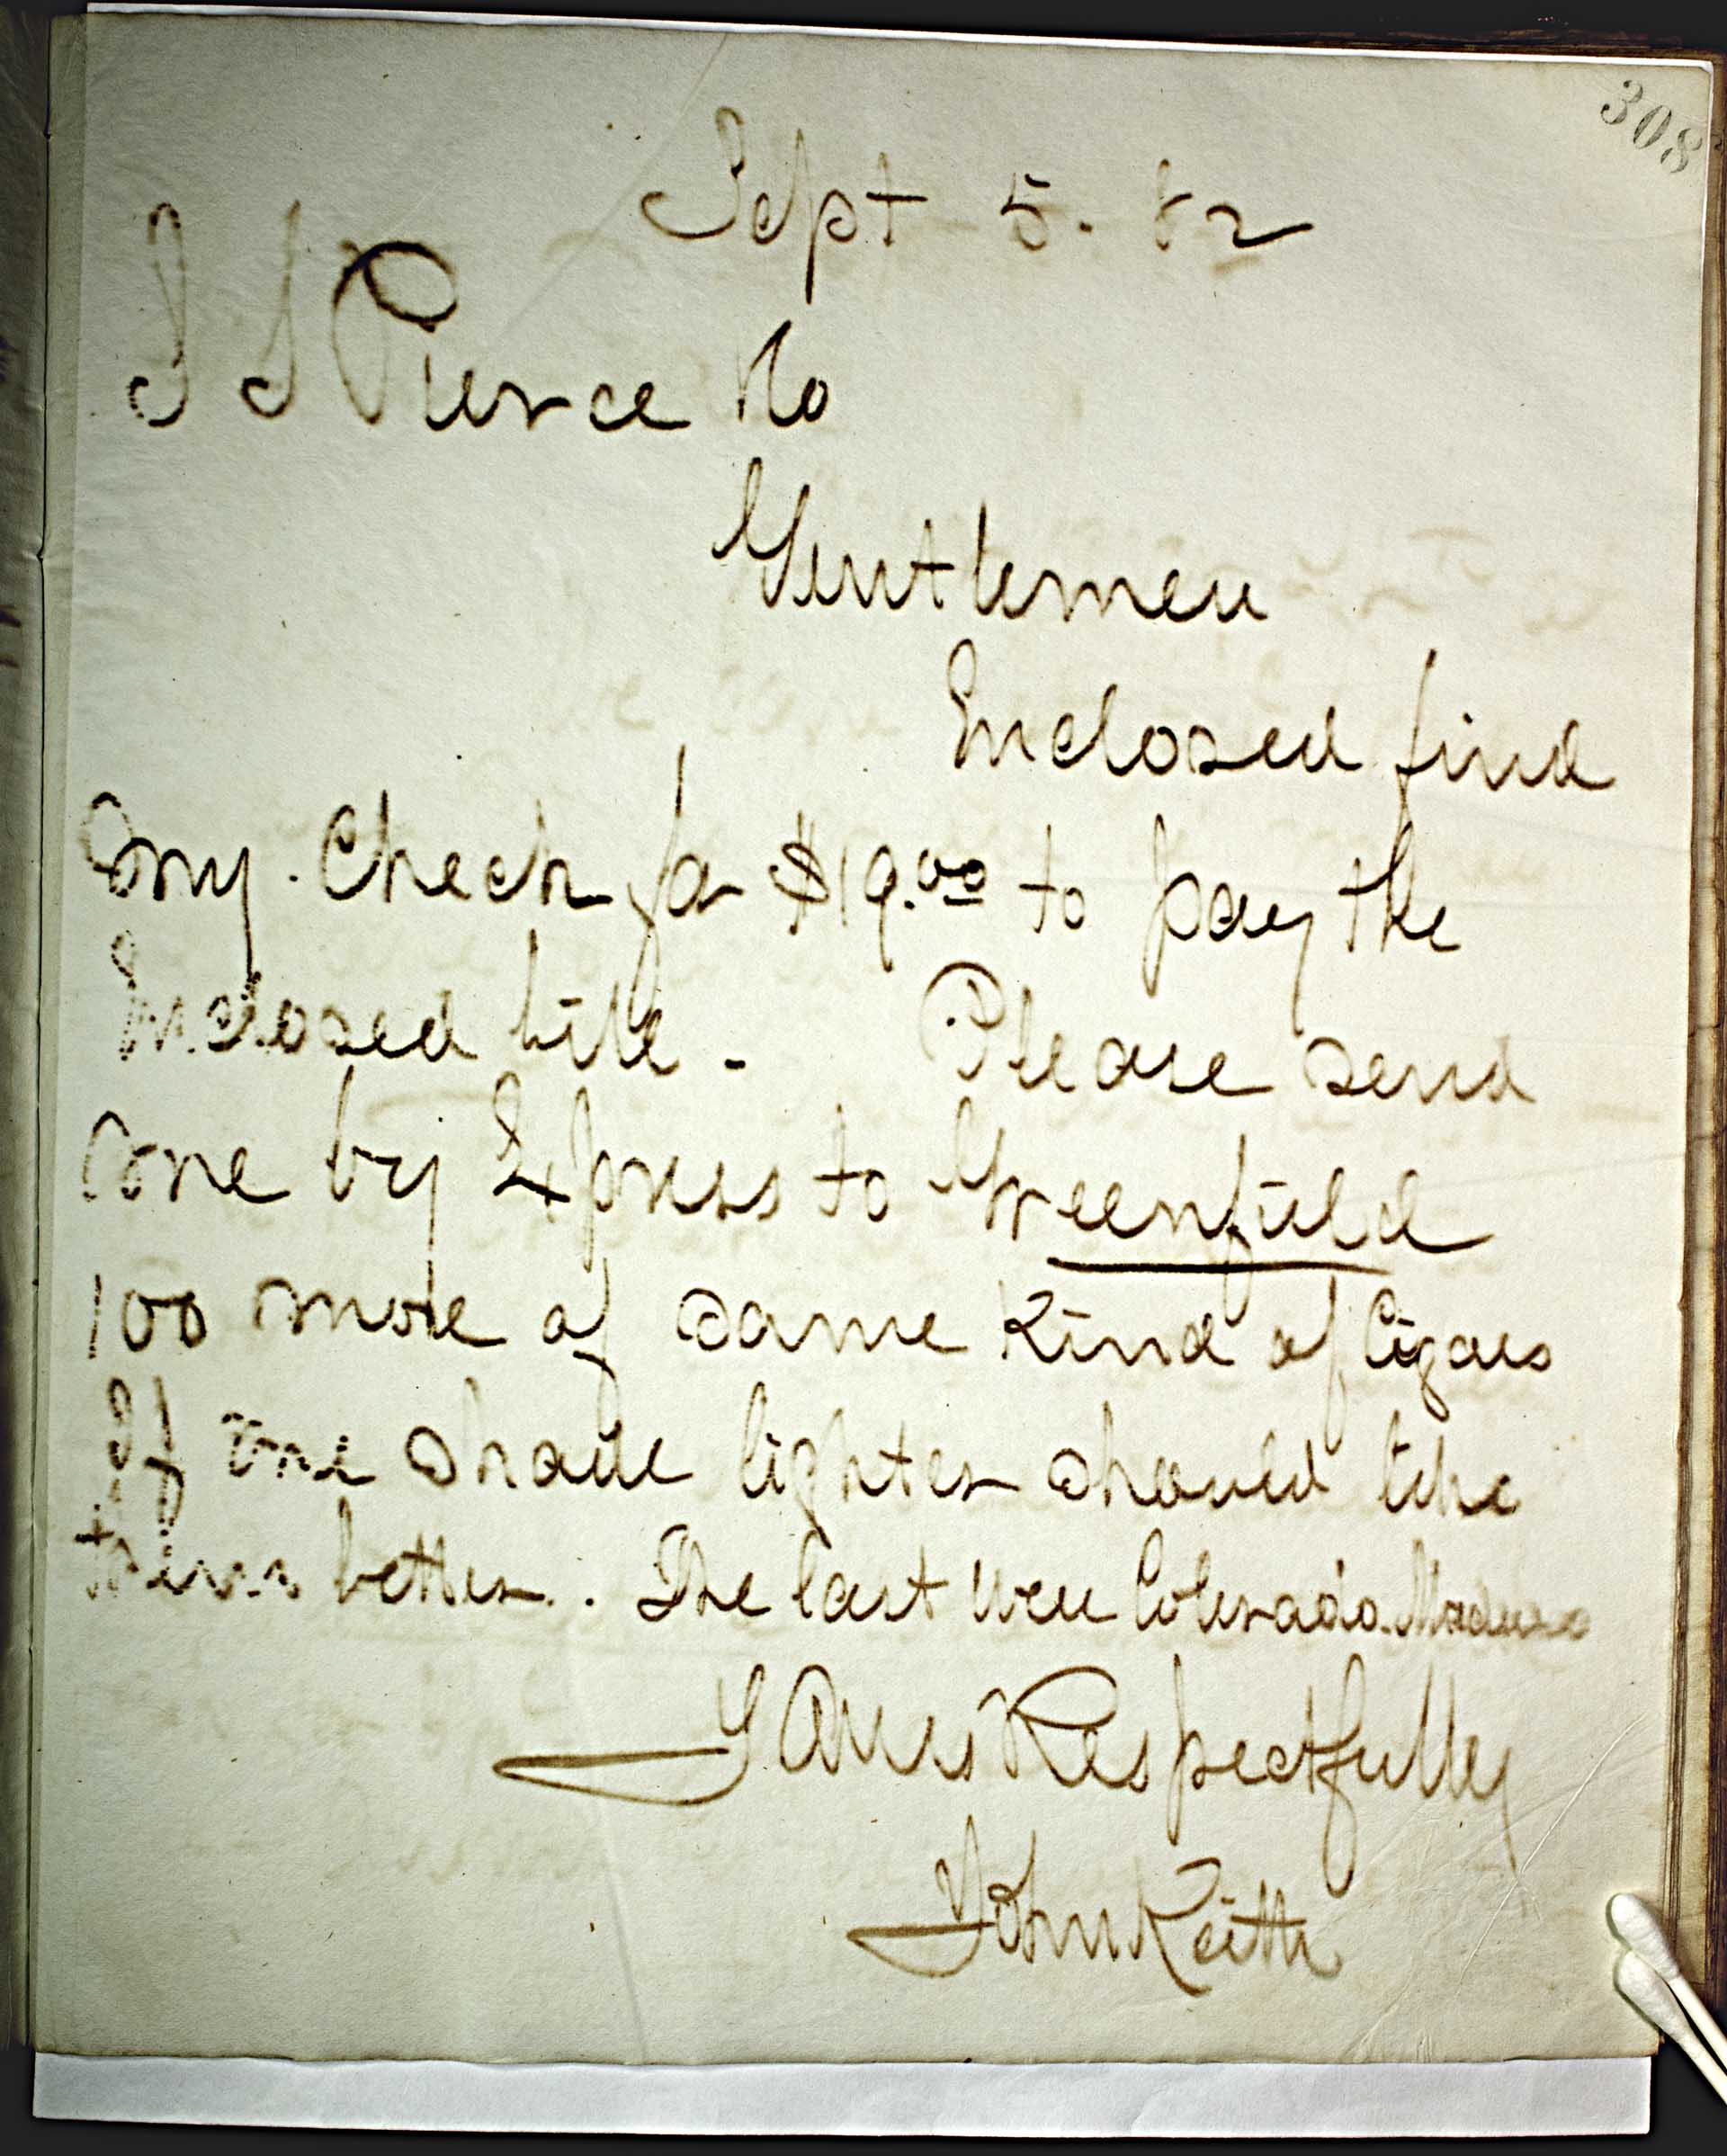 308
Sept 5. 82
S S Pierce & Co
Gentlemen
Enclosed find
my Check for $19.00 to pay the
Inclosed bill - Please send
me by Express to Greenfield
100 more of same kind of Cigars
If one shade lighter should like
them better. The last were Colorado Maduro
Yours Respectfully
John Keith